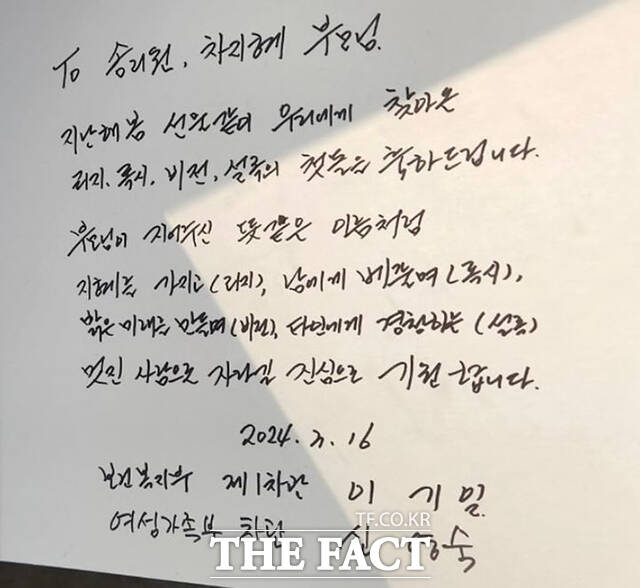 To 송리원, 차지혜 부모님.
지난해 봄 선물같이 우리에게 찾아온
리지, 록시, 비전, 설록의 첫돌을 축하드립니다.
부모님이 지어주신 뜻같은 이름처럼
지혜를 가지고(리지), 남에게 베풀며(록시),
밝은 미래를 만들며(비전), 타인에게 경청하는 (설록)
멋진 사람으로 자라길 진심으로 기원합니다.
2024. 3. 16
보건복지부 제1차관 이 기 일
여성가족부 차관 신 영 숙
TF.CO.KR
THE FACT